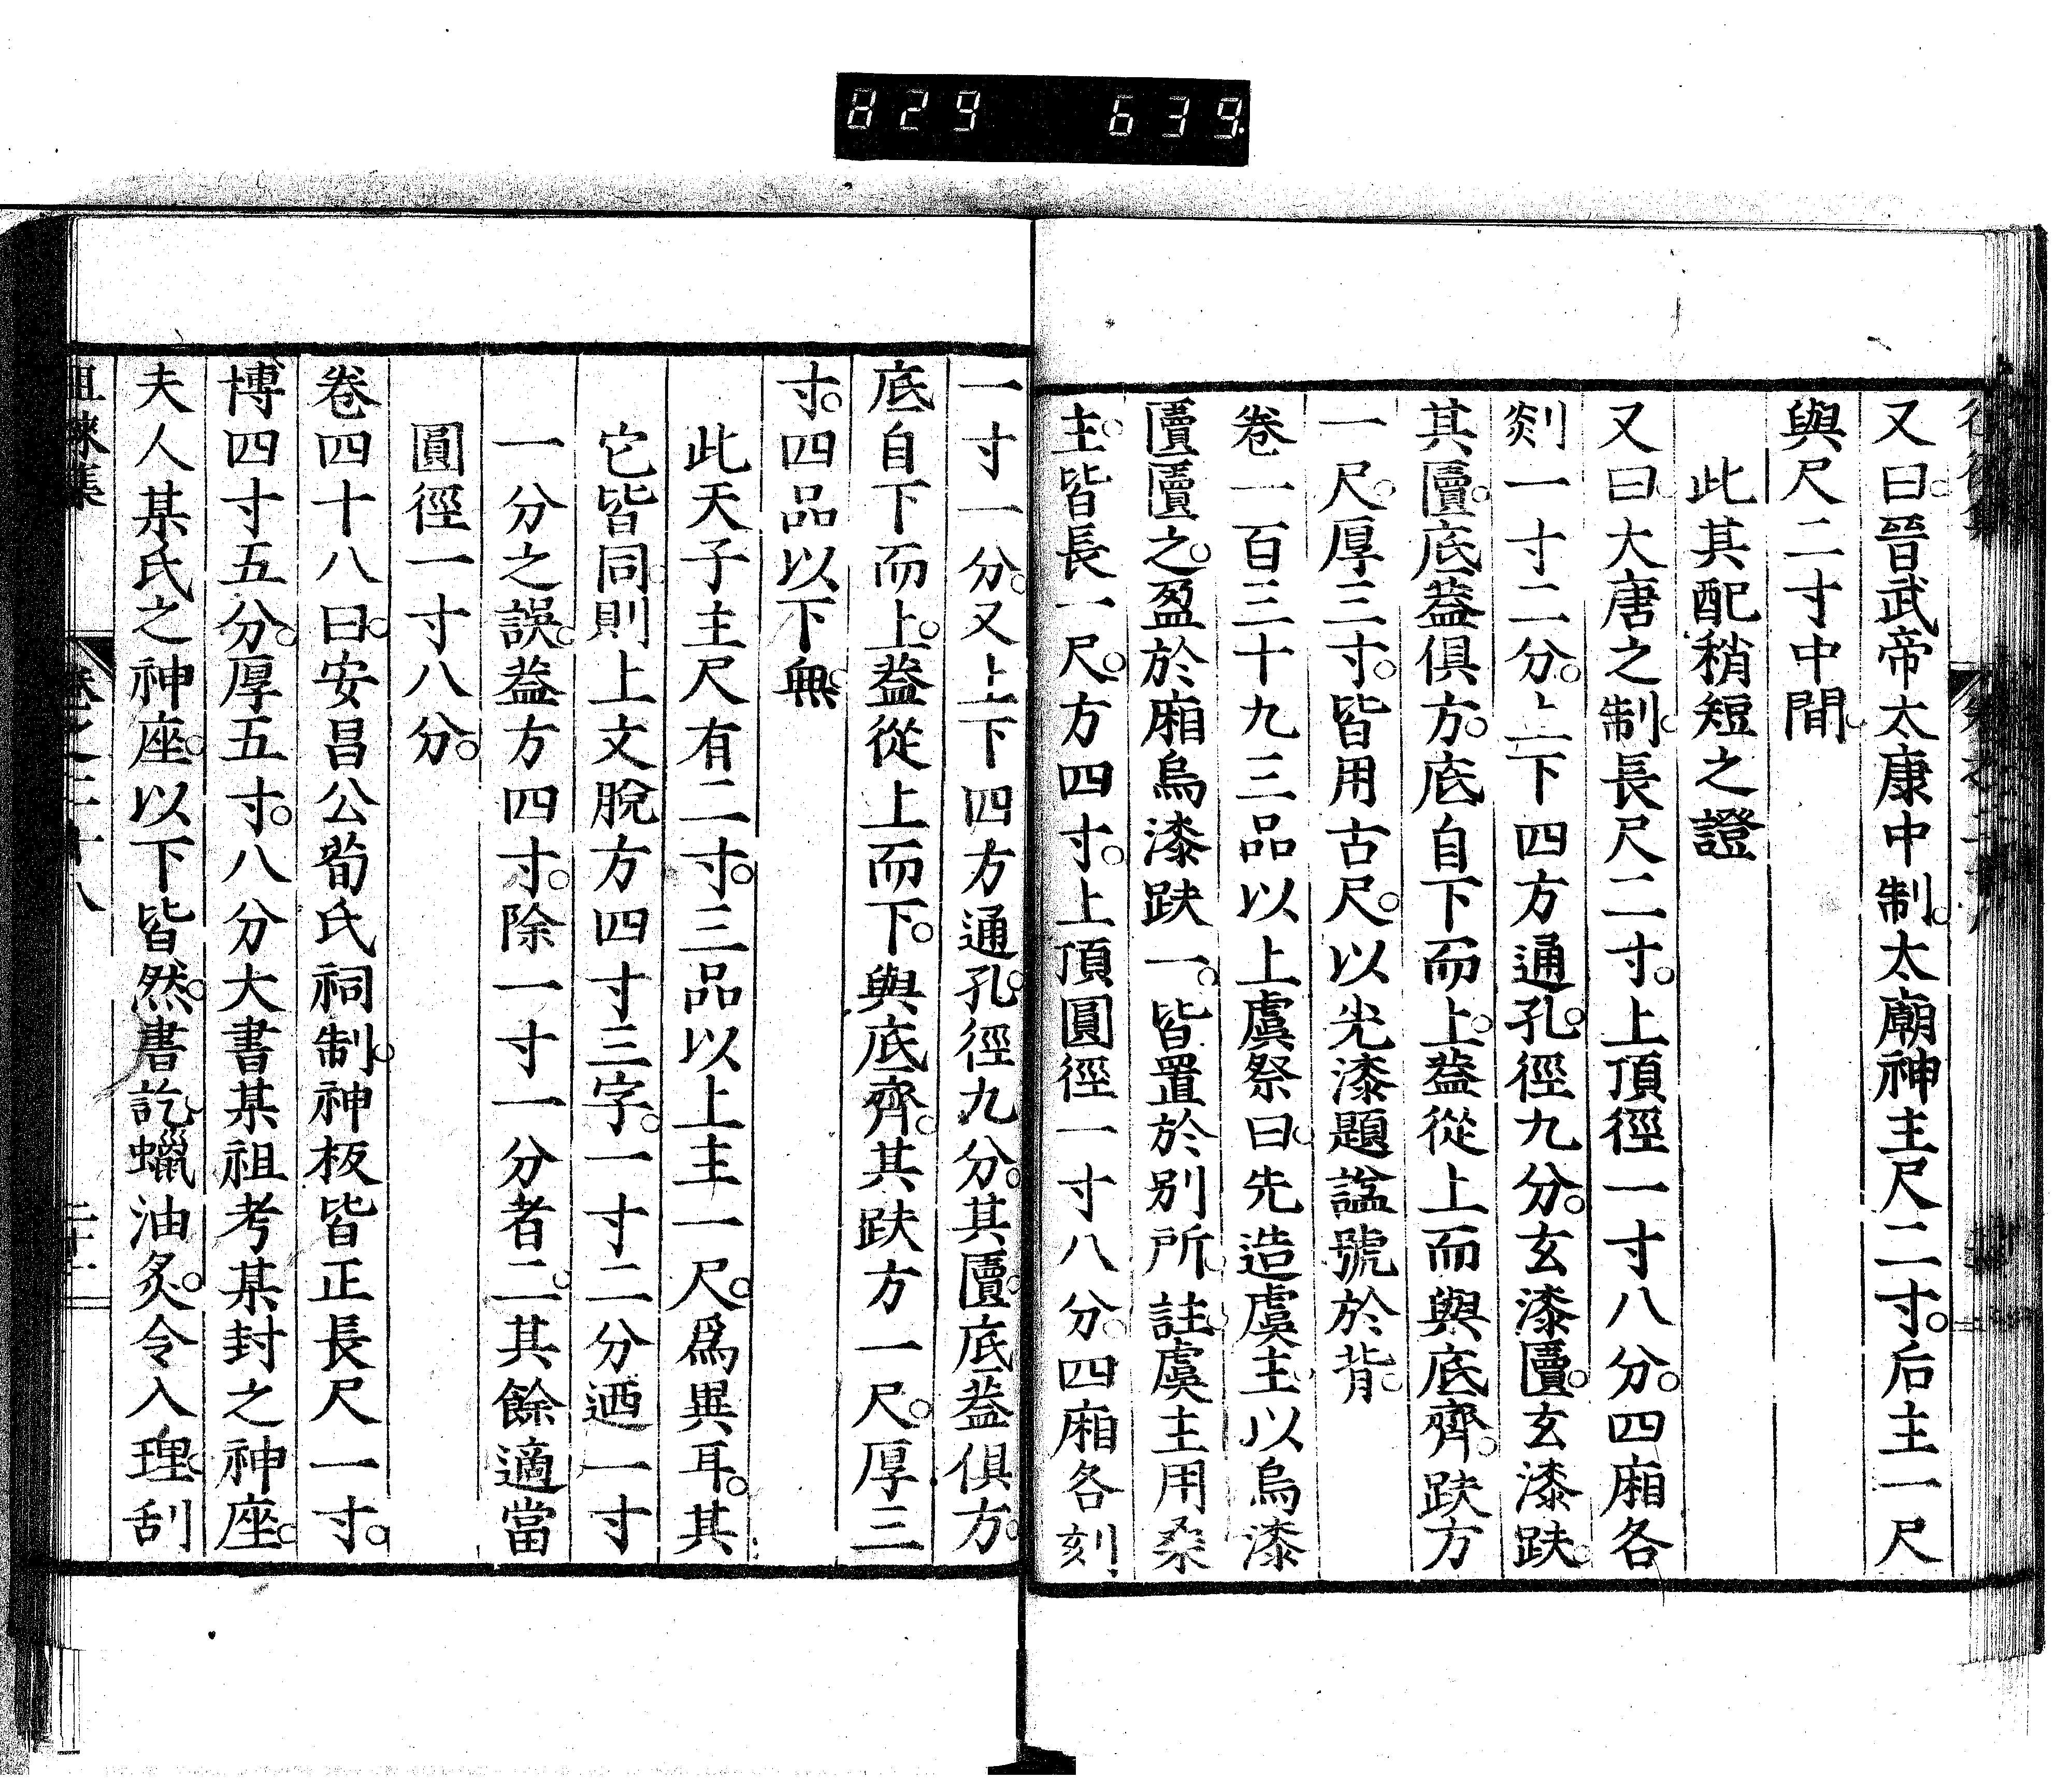 829 639
又曰。晉武帝太康中制。太廟神主尺二寸。后主一尺
與尺二寸中間。
此其配稍短之證
又曰。大唐之制。長尺二寸。上頂徑一寸八分。四廂各
剡一寸二分。上下四方通孔。徑九分。玄漆匵。玄漆趺。
其匵。底葢俱方。底自下而上。葢從上而與底齊。趺方
一尺。厚三寸。皆用古尺。以光漆題謚號於背。
卷一百三十九三品以上虞祭曰。先造虞主。以烏漆
匵匵之。盈於廂烏漆趺一。皆置於別所。註。虞主用桑
主。皆長一尺。方四寸。上頂圓徑一寸八分。四廂各刻
一寸一分。又上下四方通孔。徑九分。其匵。底葢俱方。
底自下而上。葢從上而下。與底齊。其趺方一尺。厚三
寸。四品以下無。
此天子主尺有二寸。三品以上主一尺。爲異耳。其
它皆同。則上文脫方四寸三字。一寸二分迺一寸
一分之誤。葢方四寸。除一寸一分者二。其餘適當
圓徑一寸八分。
卷四十八曰。安昌公荀氏祠制。神板皆正長尺一寸。
博四寸五分。厚五寸。八分大書某祖考某封之神座。
夫人某氏之神座。以下皆然。書訖。蠟油炙。令入理。刮
徂徠集 卷之二十八 二十二